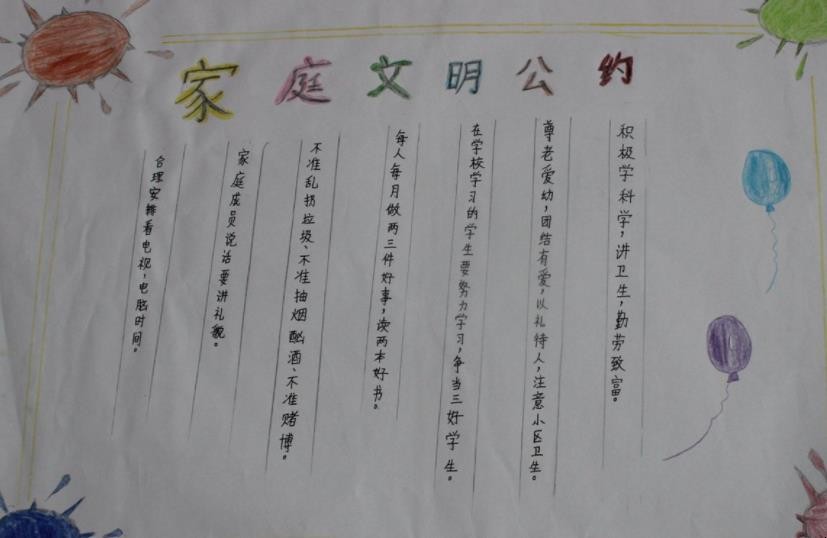 家庭文明公约
积极学科学，讲卫生，勤劳致富。
尊老爱幼，团结有爱，以礼待人，注意小区卫生。
在学校学习的学生要努力学习，争当三好学生。
每人每月做两三件好事，读两本好书。
不准乱扔垃圾、不准抽烟酗酒、不准赌博。
家庭成员说话要讲礼貌。
合理安排看电视，电脑时间。